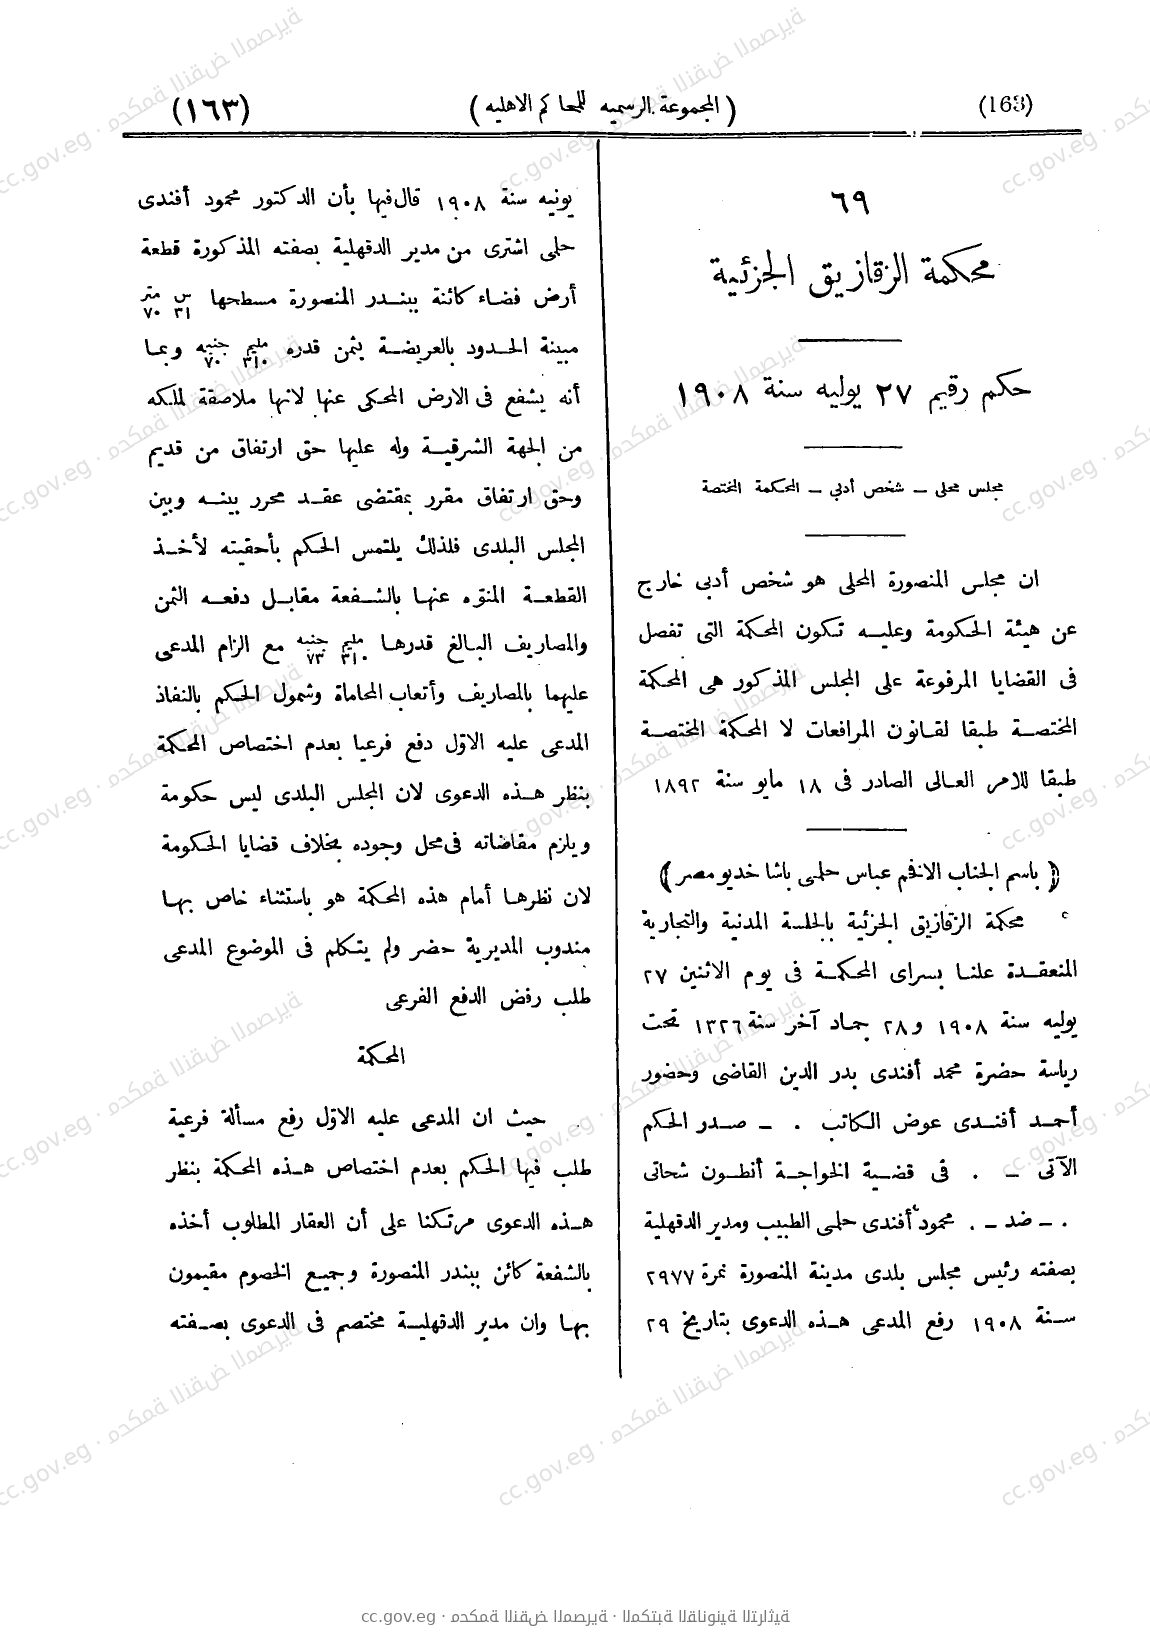 (163)
( المجموعة الرسميه للمحاكم الاهليه )
(١٦٣)
٦٩
محكمة الزقازيق الجزئية
حكم رقيم ٢٧ يوليه سنة ١٩٠٨
مجلس محلى – شخص أدبي – المحكمة المختصة
ان مجلس المنصورة المحلى هو شخص أدبى خارج
عن هيئة الحكومة وعليه تكون المحكمة التى تفصل
فى القضايا المرفوعة على المجلس المذكور هى المحكمة
المختصة طبقا لقانون المرافعات لا المحكمة المختصة
طبقا للامر العالى الصادر فى ١٨ مايو سنة ١٨٩٢
(( باسم الجناب الافخم عباس حلمى باشا خديو مصر ))
محكمة الزقازيق الجزئية بالجلسة المدنية والتجارية
المنعقدة علنا بسراى المحكمة فى يوم الاثنين ٢٧
يوليه سنة ١٩٠٨ و٢٨ جماد آخر سنة ١٣٢٦ تحت
رياسة حضرة محمد أفندى بدر الدين القاضى وحضور
أحمد أفندى عوض الكاتب . – صدر الحكم
الآتى – . فى قضية الخواجة أنطون شحاتى
. – ضد – . محمود أفندى حلمى الطبيب ومدير الدقهلية
بصفته رئيس مجلس بلدى مدينة المنصورة نمرة ٢٩٧٧
سنة ١٩٠٨ رفع المدعى هذه الدعوى بتاريخ ٢٩
يونيه سنة ١٩٠٨ قال فيها بأن الدكتور محمود أفندى
حلمى اشترى من مدير الدقهلية بصفته المذكورة قطعة
أرض فضاء كائنة ببندر المنصورة مسطحها س ٣١ متر ٧٠
مبينة الحدود بالعريضة بثمن قدره مليم ٣١٠ جنيه ٧٠ وبما
أنه يشفع فى الارض المحكى عنها لانها ملاصقة لملكه
من الجهة الشرقية وله عليها حق ارتفاق من قديم
وحق ارتفاق مقرر بمقتضى عقد محرر بينه وبين
المجلس البلدى فلذلك يلتمس الحكم بأحقيته لأخذ
القطعة المنوّه عنها بالشفعة مقابل دفعه الثمن
والمصاريف البالغ قدرها مليم ٣١٠ جنيه ٧٣ مع الزام المدعى
عليهما بالمصاريف وأتعاب المحاماة وشمول الحكم بالنفاذ
المدعى عليه الاوّل دفع فرعيا بعدم اختصاص المحكمة
بنظر هذه الدعوى لان المجلس البلدى ليس حكومة
ويلزم مقاضاته فى محل وجوده بخلاف قضايا الحكومة
لان نظرها أمام هذه المحكمة هو باستثناء خاص بها
مندوب المديرية حضر ولم يتكلم فى الموضوع المدعى
طلب رفض الدفع الفرعى
المحكمة
حيث ان المدعى عليه الاوّل رفع مسألة فرعية
طلب فيها الحكم بعدم اختصاص هذه المحكمة بنظر
هذه الدعوى مرتكنا على أن العقار المطلوب أخذه
بالشفعة كائن ببندر المنصورة وجميع الخصوم مقيمون
بها وان مدير الدقهلية مختصم فى الدعوى بصفته
cc.gov.eg · محكمة النقض المصرية · المكتبة القانونية التراثية